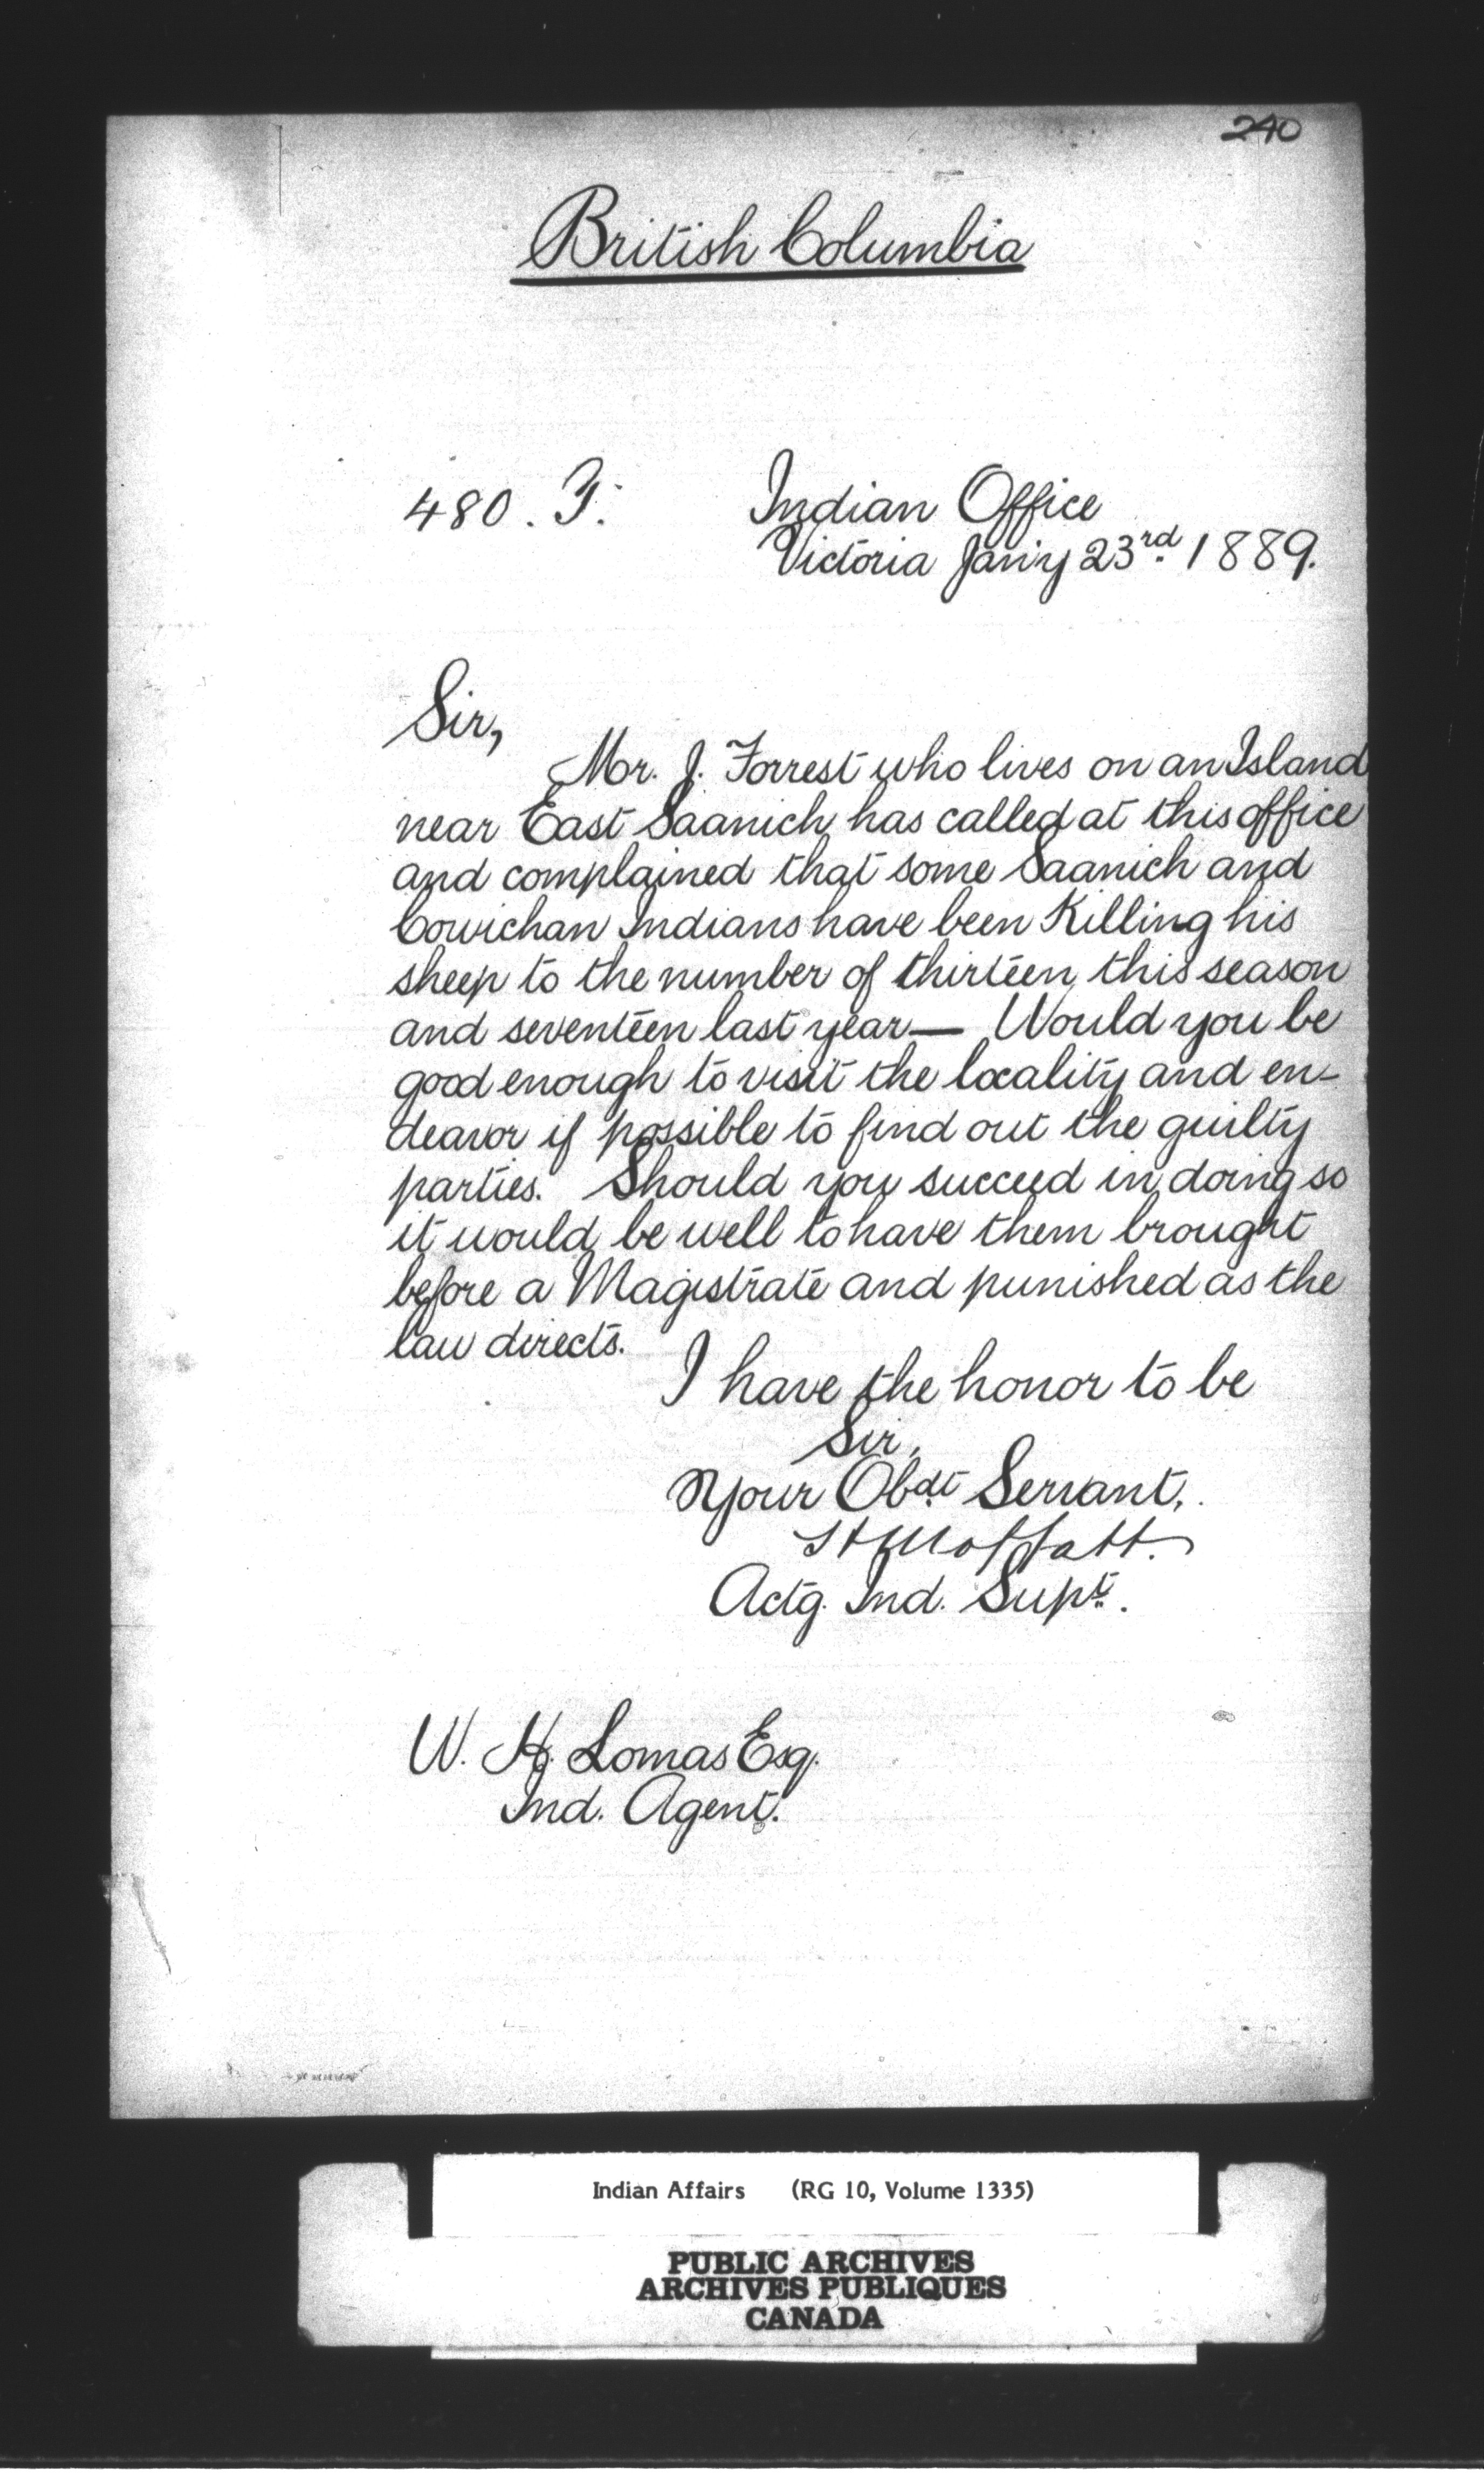 240
British Columbia
480. F.
Indian Office
Victoria Jan'y 23rd 1889.
Sir,
Mr. J. Forrest who lives on an Island
near East Saanich has called at this office
and complained that some Saanich and
Cowichan Indians have been Killing his
sheep to the number of thirteen this season
and seventeen last year— Would you be
good enough to visit the locality and en-
deavor if possible to find out the guilty
parties. Should you succeed in doing so
it would be well to have them brought
before a Magistrate and punished as the
law directs.
I have the honor to be
Sir,
Your Obdt Servant,
H Moffatt.
Actg. Ind. Supt.
W. H. Lomas Esq.
Ind. Agent.
Indian Affairs (RG 10, Volume 1335)
PUBLIC ARCHIVES
ARCHIVES PUBLIQUES
CANADA